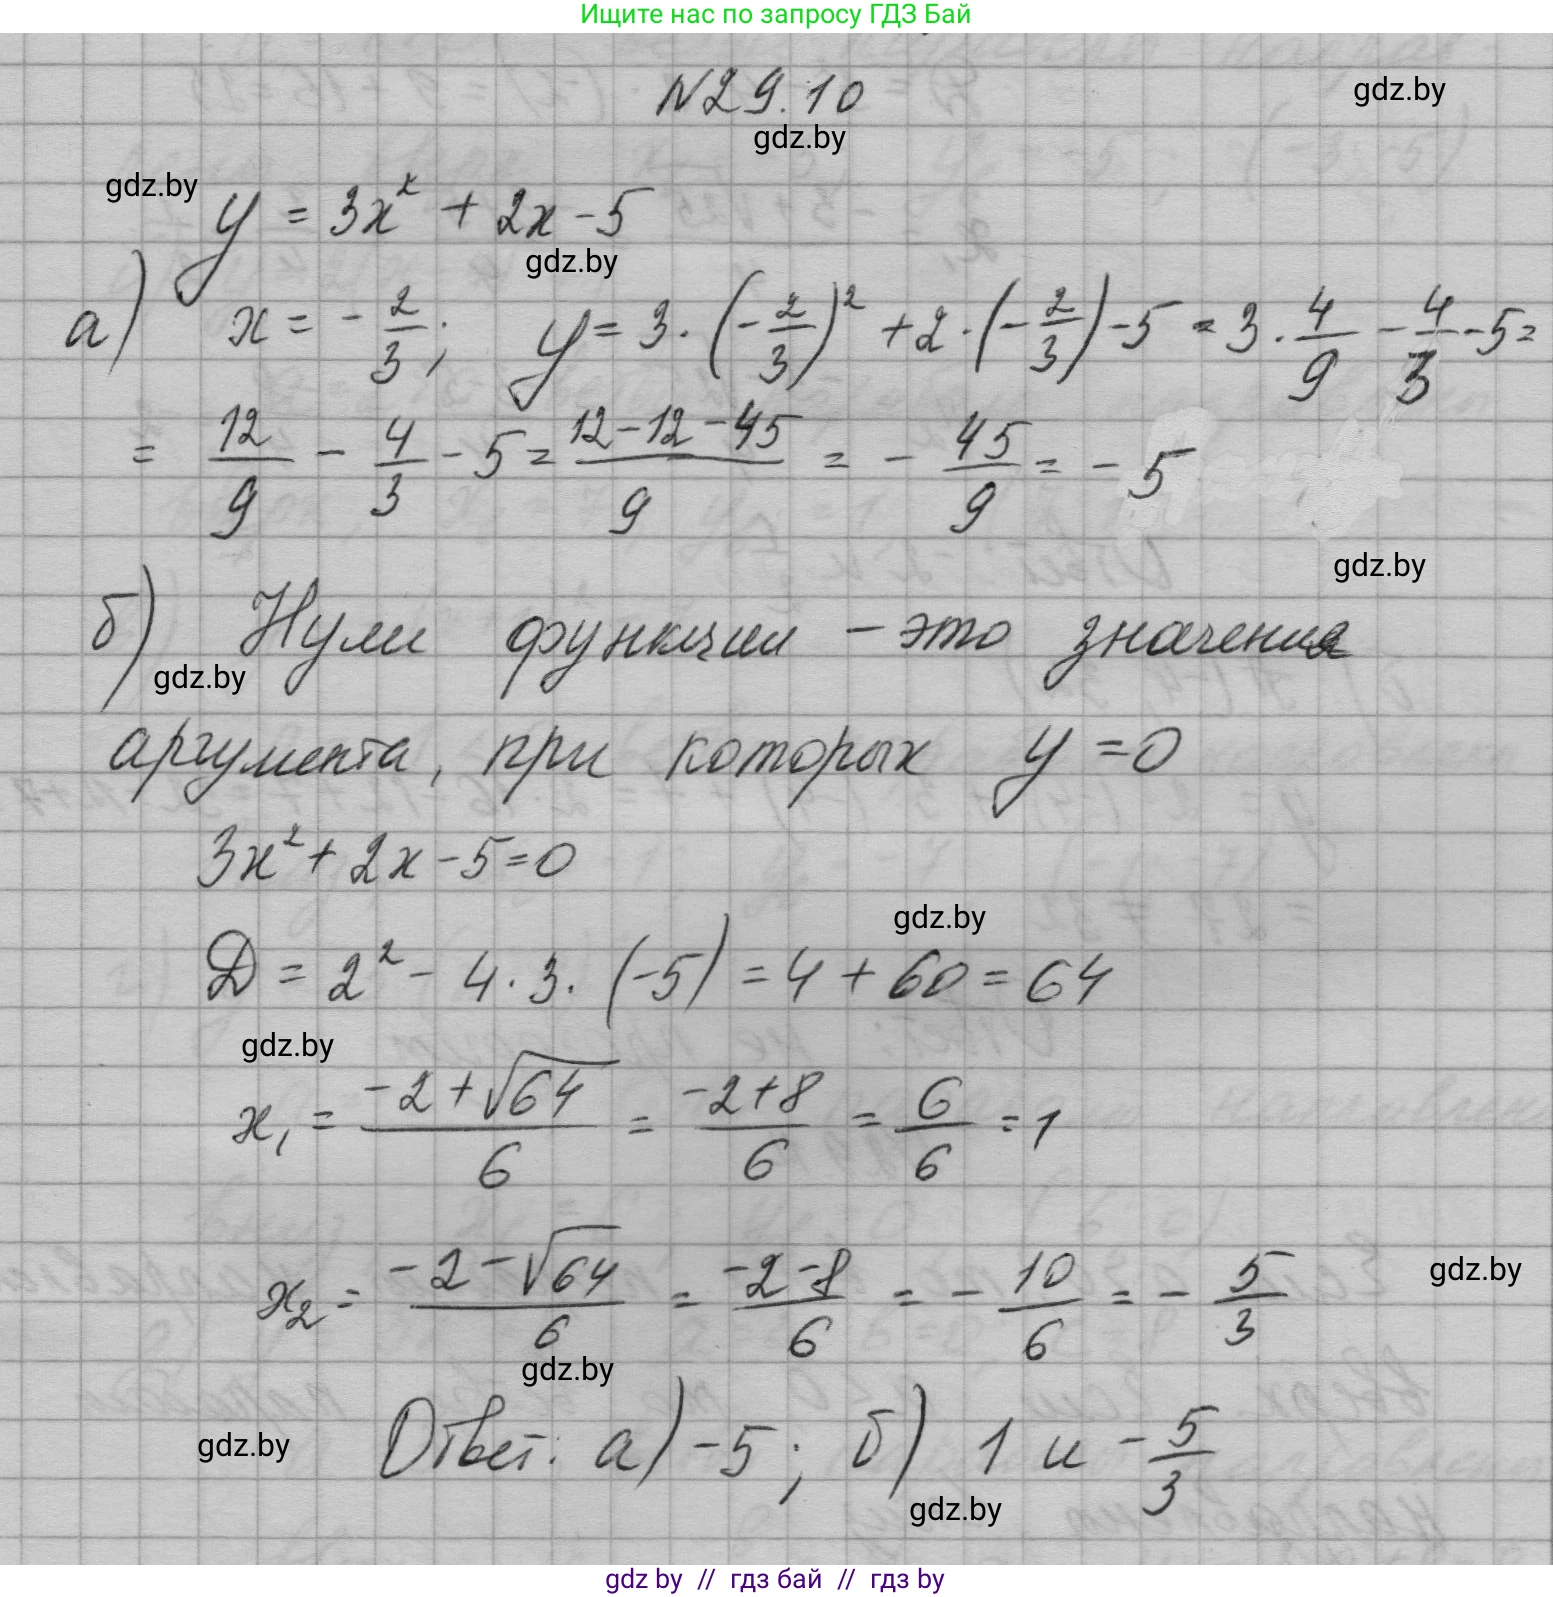 Ищите нас по запросу ГДЗ Бай
№29.10
gdz.by
gdz.by
gdz.by
y = 3x² + 2x - 5
gdz.by
а) x = -2/3; y = 3·(-2/3)² + 2·(-2/3) - 5 = 3·4/9 - 4/3 - 5 =
= 12/9 - 4/3 - 5 = (12-12-45)/9 = -45/9 = -5
gdz.by
б) Нули функции - это значения
gdz.by
аргумента, при которых y = 0
3x² + 2x - 5 = 0
gdz.by
D = 2² - 4·3·(-5) = 4 + 60 = 64
gdz.by
x₁ = (-2+√64)/6 = (-2+8)/6 = 6/6 = 1
x₂ = (-2-√64)/6 = (-2-8)/6 = -10/6 = -5/3
gdz.by
gdz.by
Ответ: а) -5; б) 1 и -5/3
gdz.by
gdz.by
gdz by // гдз бай // гдз by